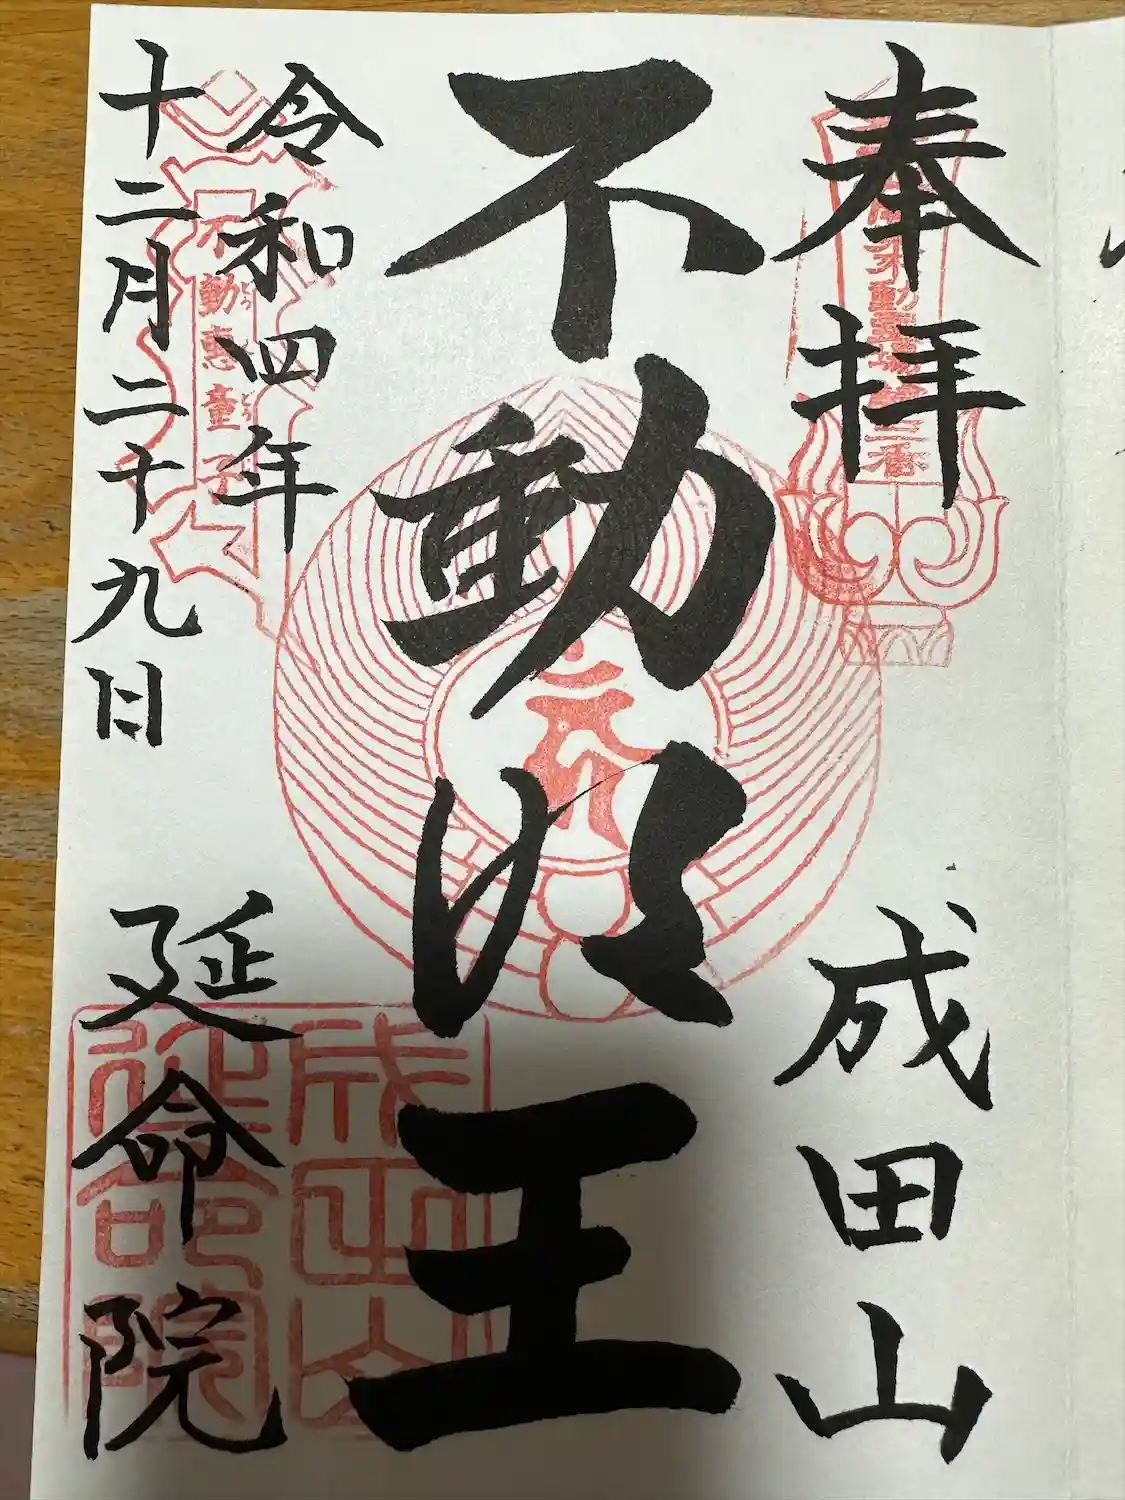 奉拝
成田山
不動明王
令和四年
十二月二十九日
延命院
不動霊場第二番
不動恵童子
成田山
延命院